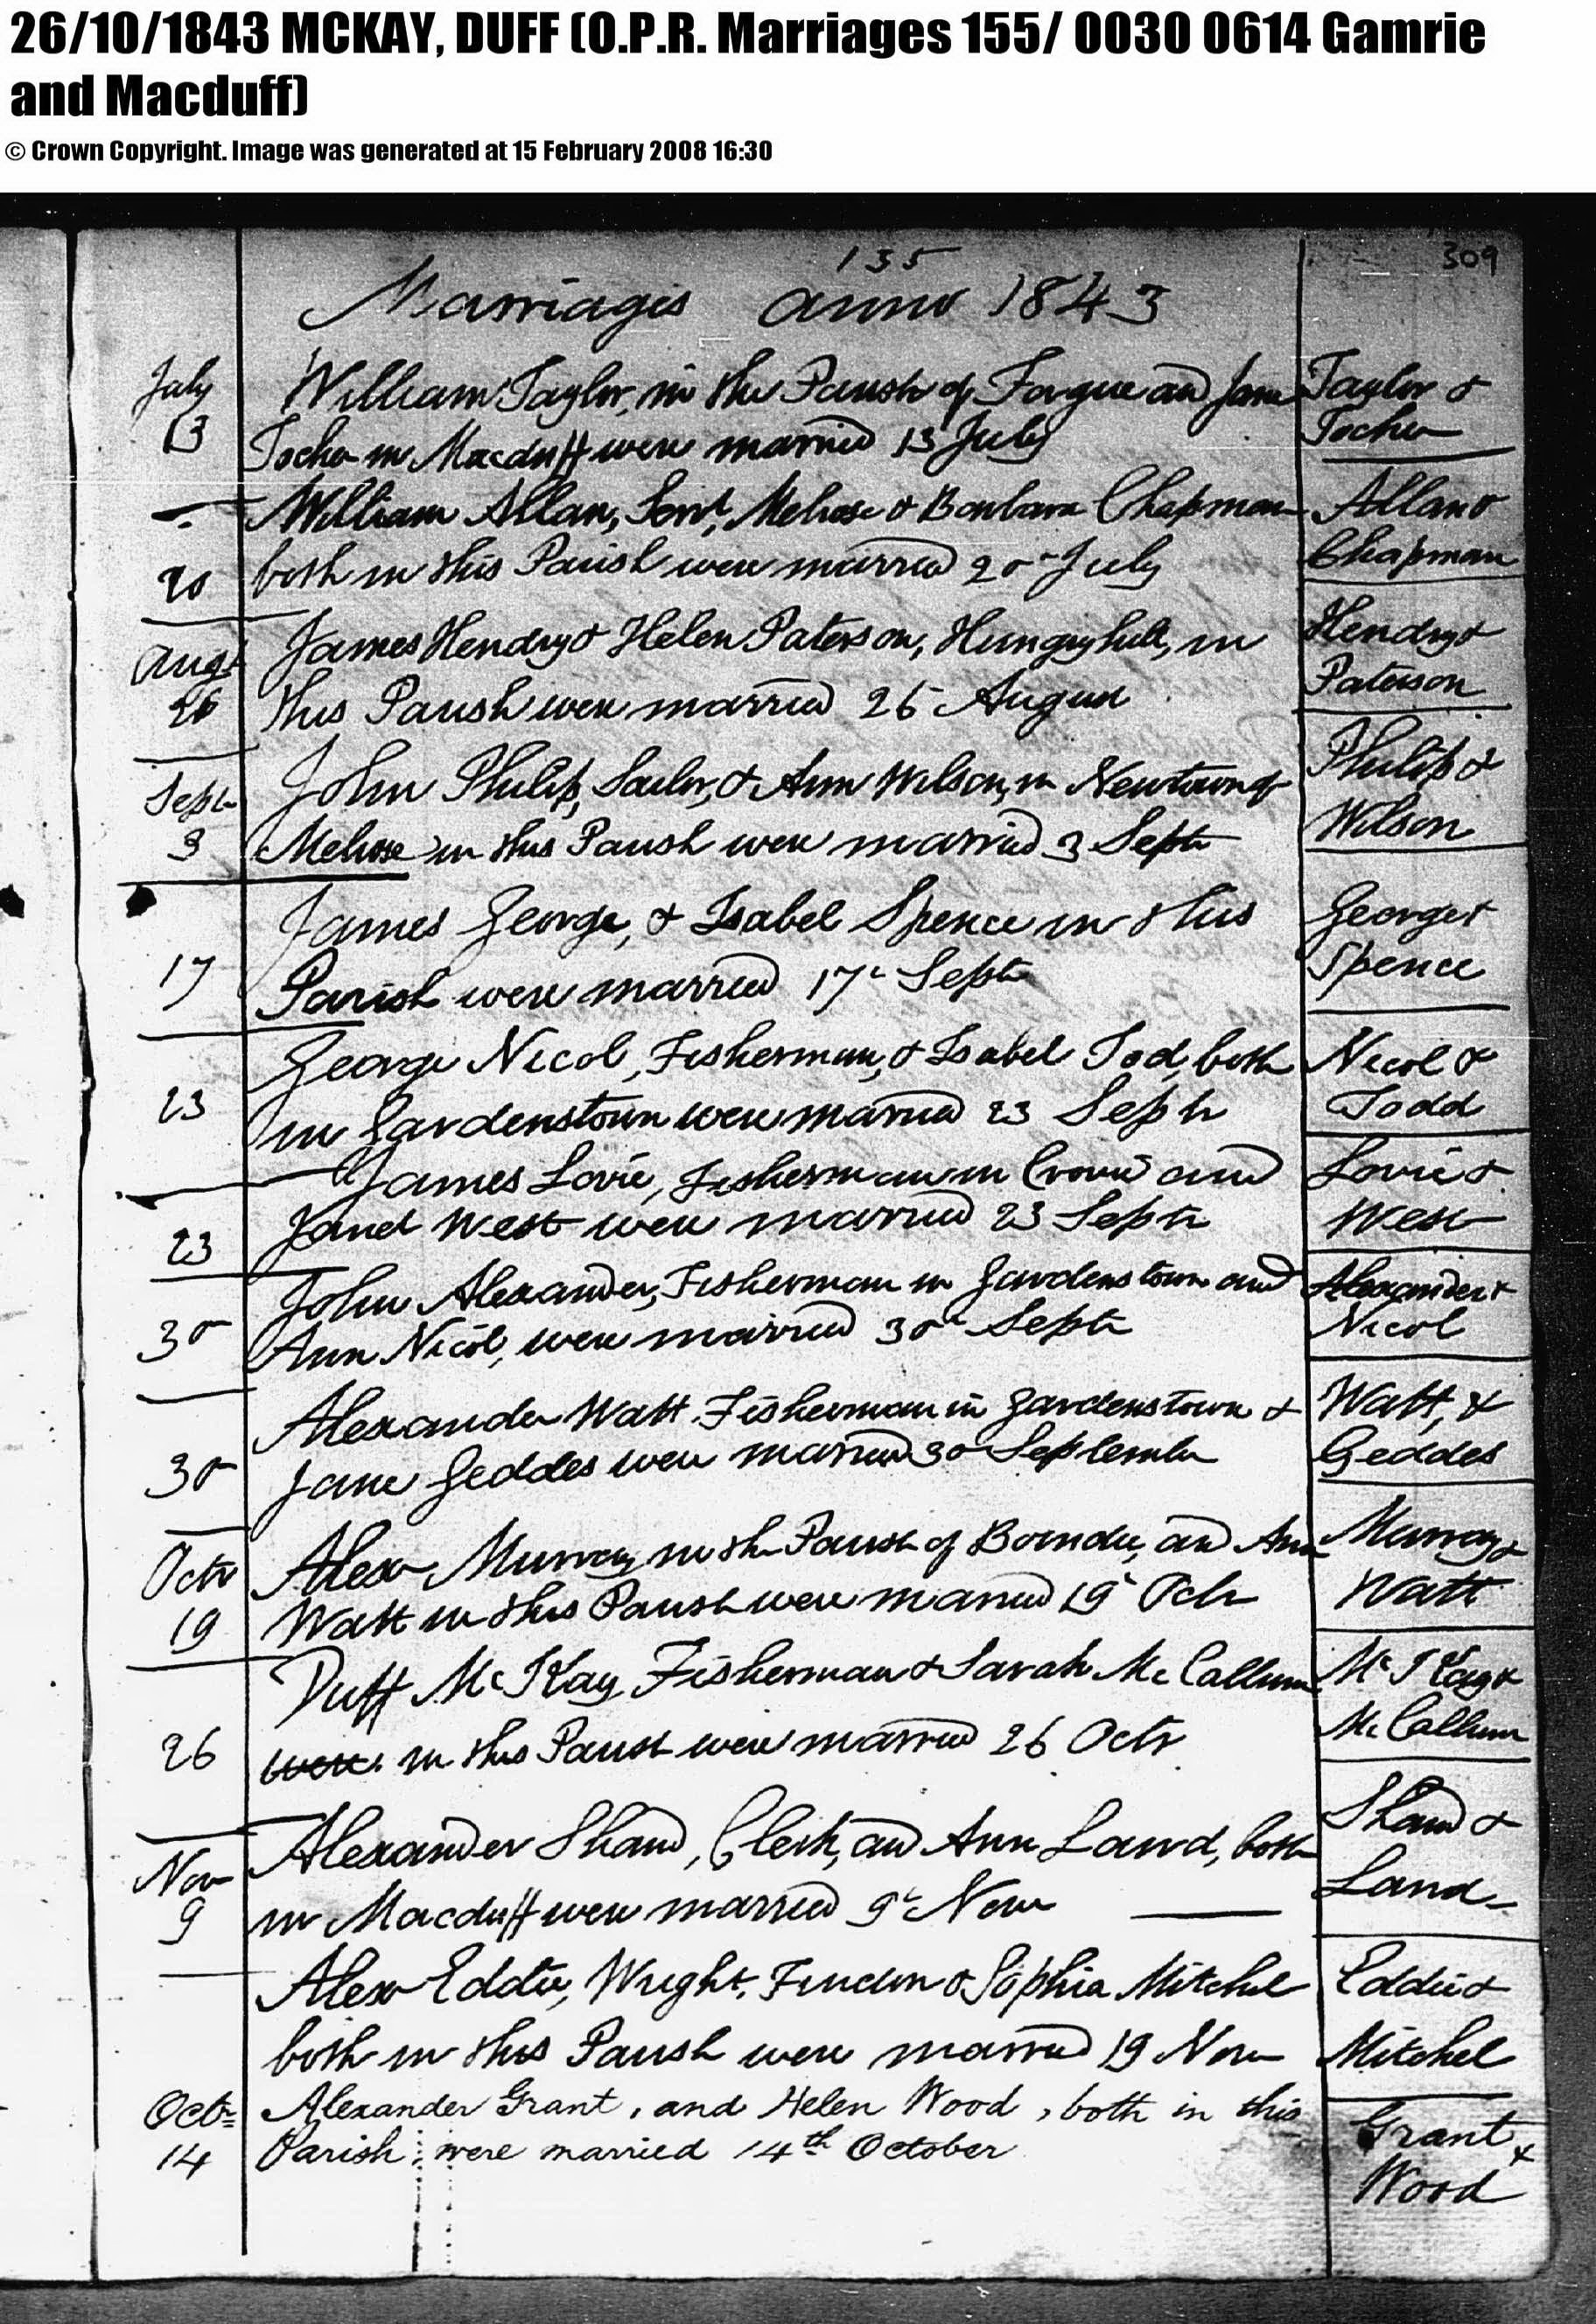 26/10/1843 MCKAY, DUFF (O.P.R. Marriages 155/ 0030 0614 Gamrie
and Macduff)
© Crown Copyright. Image was generated at 15 February 2008 16:30
135
309
Marriages anno 1843
July
13
William Taylor, in the Parish of Forgue and Jane
Tocher in Macduff were married 13 July
Taylor &
Tocher
20
William Allan, Servt, Melrose & Barbara Chapman
both in this Parish were married 20 July
Allan &
Chapman
Augt
26
James Hendry & Helen Paterson, Hungryhill, in
this Parish were married 26 August
Hendry &
Paterson
Septr
3
John Philip, Sailor, & Ann Wilson, in Newtown of
Melrose in this Parish were married 3 Septr
Philip &
Wilson
17
James George, & Isabel Spence in this
Parish were married 17 Septr
George &
Spence
23
George Nicol, Fisherman, & Isabel Tod, both
in Gardenstown were married 23 Septr
Nicol &
Todd
23
James Lovie, Fisherman in Crovie and
Janet West were married 23 Septr
Lovie &
West
30
John Alexander, Fisherman in Gardenstown and
Ann Nicol, were married 30 Septr
Alexander &
Nicol
30
Alexander Watt, Fisherman in Gardenstown &
Jane Geddes were married 30 September
Watt, &
Geddes
Octr
19
Alexr Murray in the Parish of Boyndie, and Ann
Watt in this Parish were married 19 Octr
Murray &
Watt
26
Duff McKay Fisherman & Sarah McCallum
were in this Parish were married 26 Octr
McKay &
McCallum
Nov
9
Alexander Shand, Clerk, and Ann Laird, both
in Macduff were married 9 Novr
Shand &
Laird
Alexr Eddie, Wright, & Sophia Mitchel
both in this Parish were married 19 Novr
Eddie &
Mitchel
Octr
14
Alexander Grant, and Helen Wood, both in this
Parish, were married 14th October
Grant &
Wood